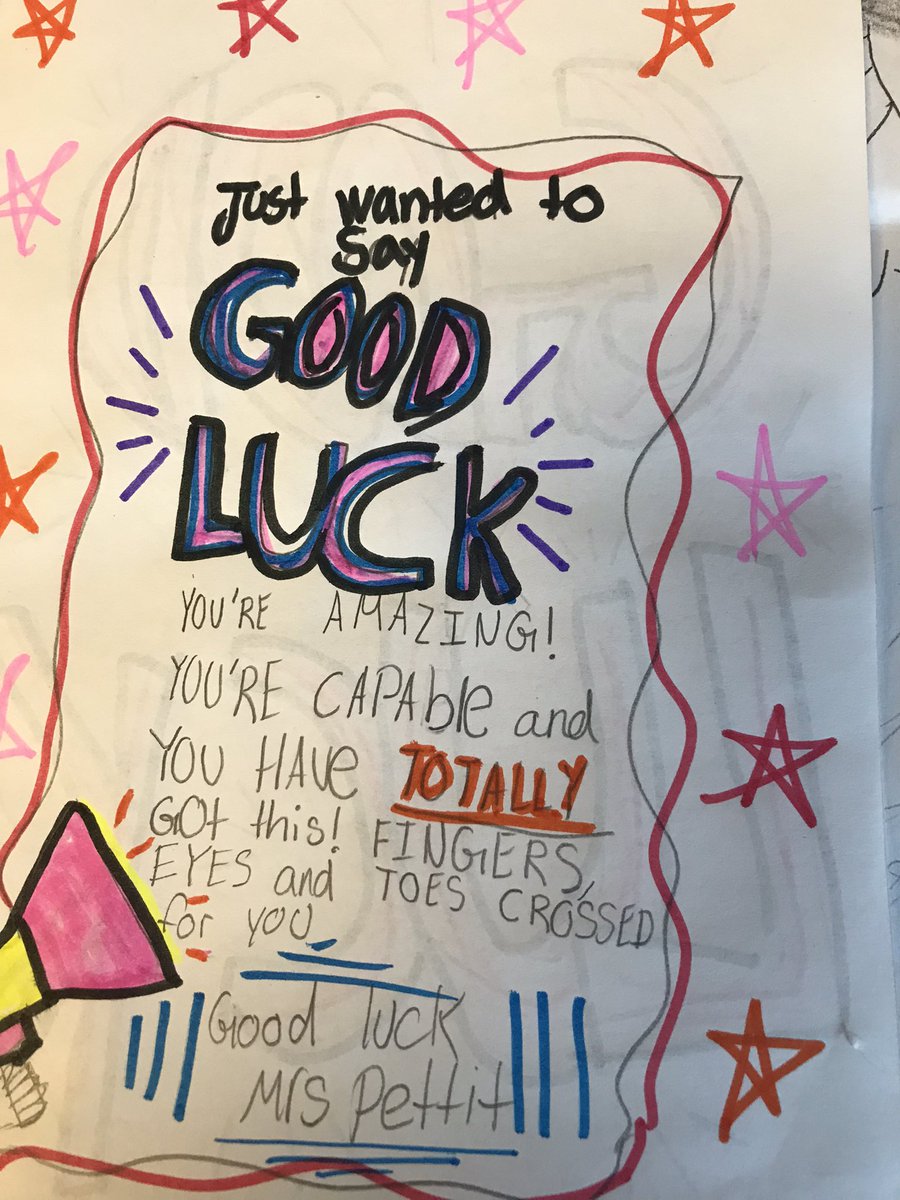 Just wanted to
say
GOOD
LUCK
YOU'RE AMAZING!
YOU'RE CAPAble and
YOU HAVe TOTALLY
GOt this! FINGERS,
EYES and TOES CROSSED
for you
Good luck
Mrs Pettit